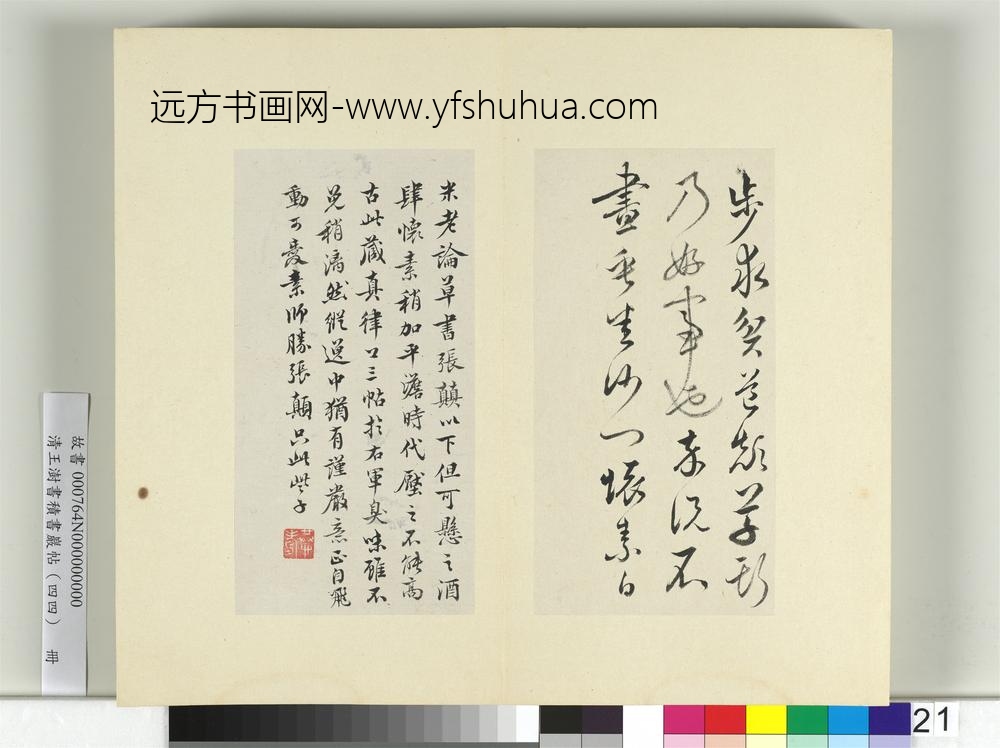 远方书画网-www.yfshuhua.com
步求冥芒顛草斯
乃好事也幸況不
盡垂生以一懷素白
米老論草書張顛以下但可懸之酒
肆懷素稍加平澹時代壓之不能高
古此藏真律公三帖於右軍臭味雖不
免稍漓然縱逸中猶有謹嚴意正自飛
動可愛素師勝張顛只此些子
故書 000764N000000000
清王澍書積書巖帖(四四) 冊
21